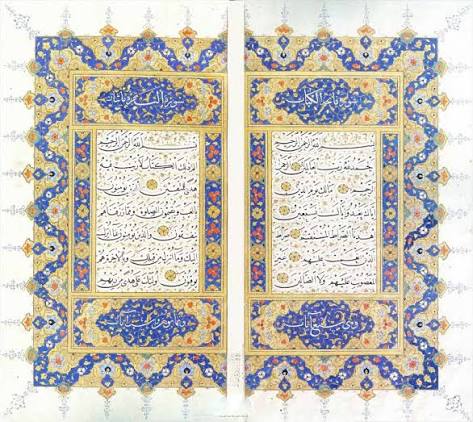 سورة فاتحة الكتاب
بسم الله الرحمن الرحيم
الحمد لله رب العالمين الرحمن
الرحيم مالك يوم الدين
إياك نعبد وإياك نستعين
اهدنا الصراط المستقيم صراط
الذين أنعمت عليهم غير
المغضوب عليهم ولا الضالين
وهي سبع آيات
سورة البقرة
بسم الله الرحمن الرحيم
الم ذلك الكتاب لا ريب فيه
هدى للمتقين الذين يؤمنون
بالغيب ويقيمون الصلوة ومما رزقناهم
ينفقون والذين يؤمنون بما أنزل
إليك وما أنزل من قبلك وبالآخرة هم
يوقنون أولئك على هدى من ربهم